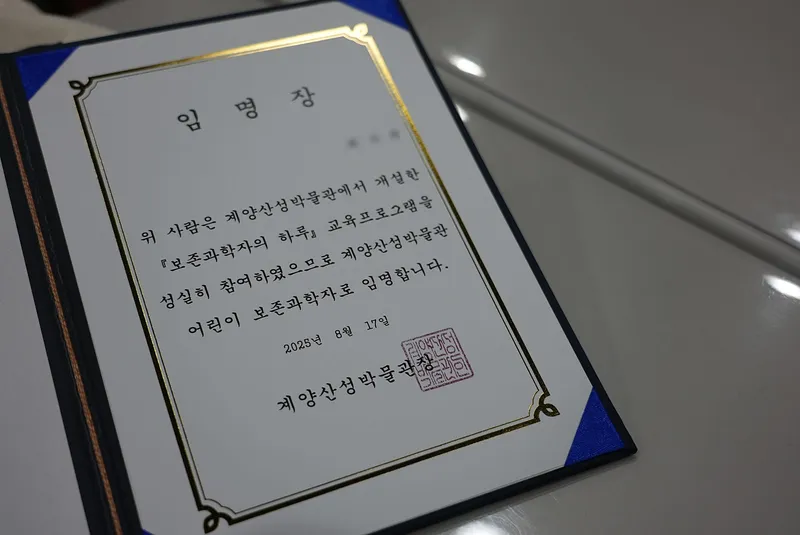 임 명 장
위 사람은 계양산성박물관에서 개설한
『보존과학자의 하루』 교육프로그램을
성실히 참여하였으므로 계양산성박물관
어린이 보존과학자로 임명합니다.
2025년 8월 17일
계양산성박물관장